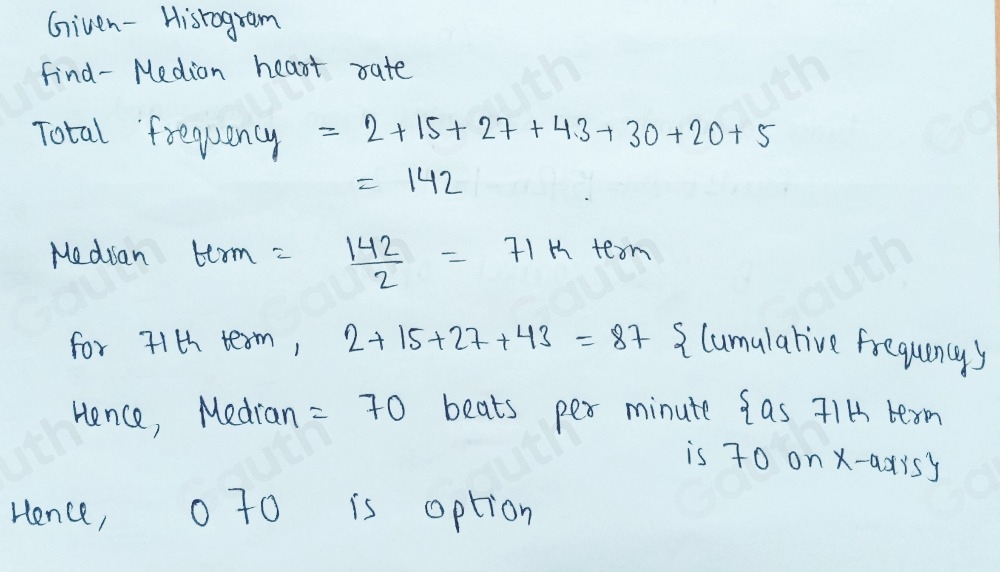 Given- Histogram
find- Median heart rate
Total frequency = 2+15+27+43+30+20+5
= 142
Median term = 142/2 = 71th term
for 71th term, 2+15+27+43 = 87 {Cumulative frequency}
Hence, Median = 70 beats per minute {as 71th term
is 70 on X-axis}
Hence, 0 70 is option
Gauth